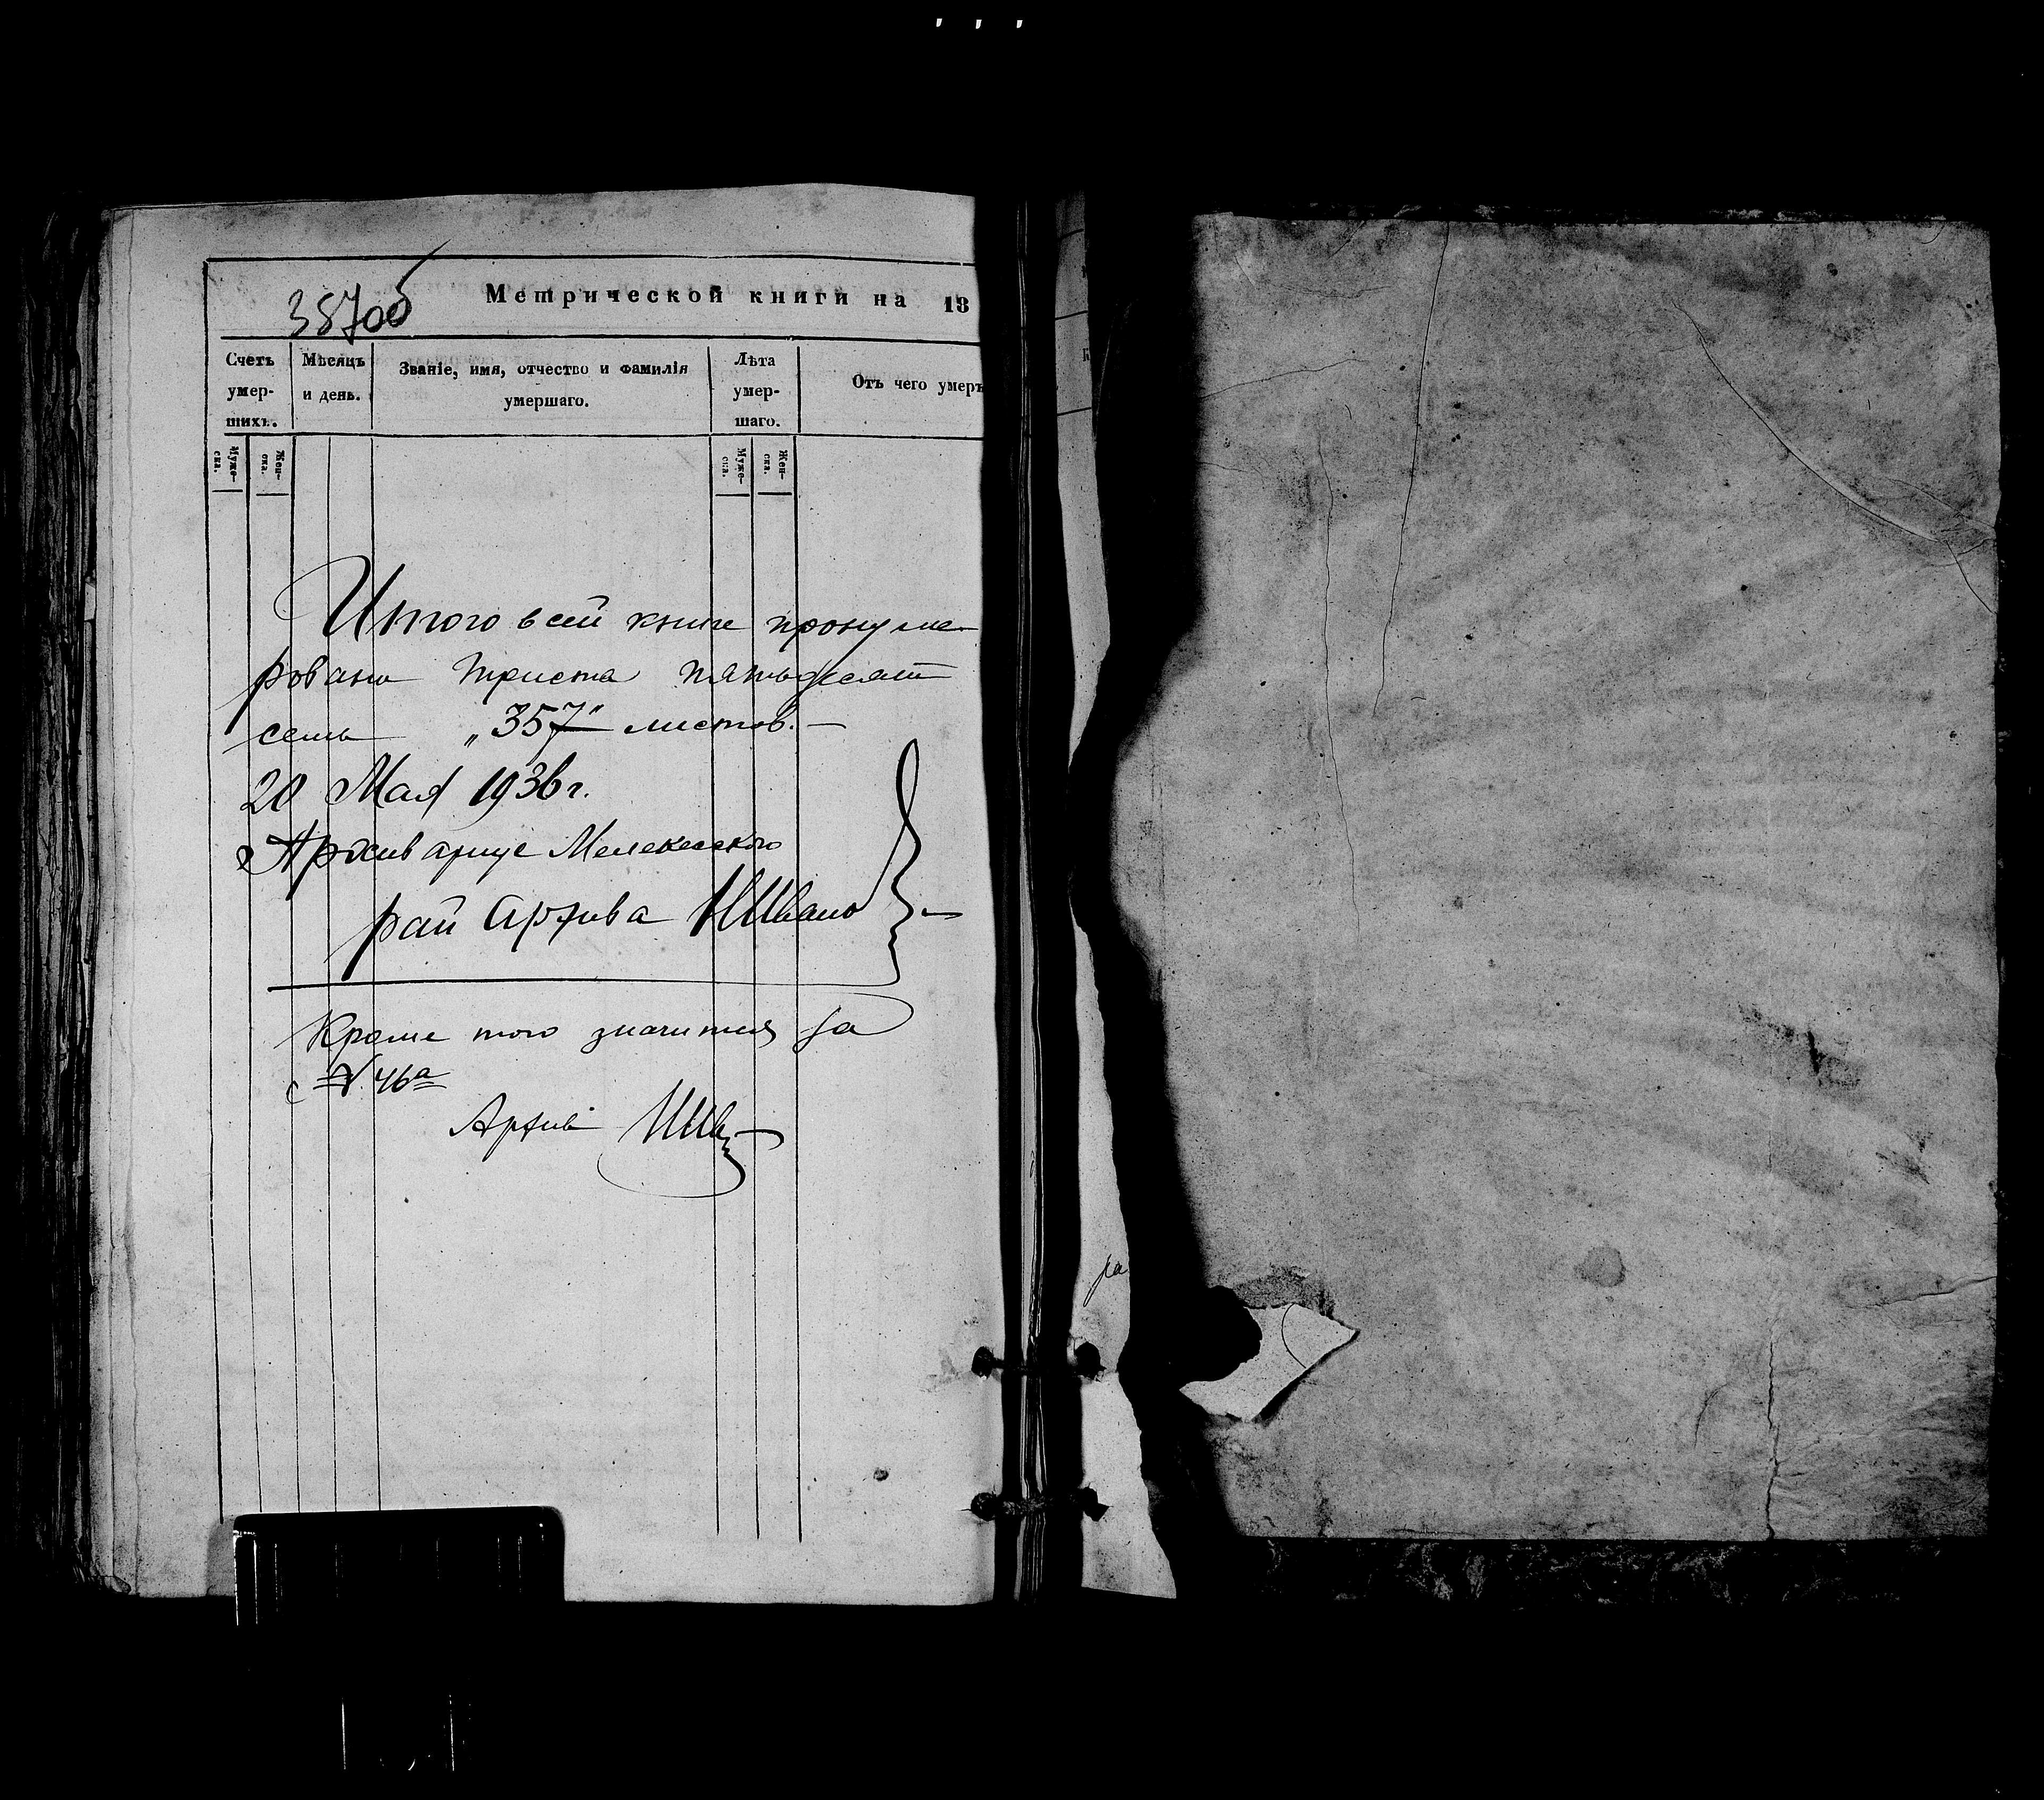 387об
Метрической книги на 18
Счетъ умер-шихъ.
Мѣсяцъ и день.
Званіе, имя, отчество и фамилія умершаго.
Лѣта умер-шаго.
Отъ чего умеръ
Муже-ска.
Жен-ска.
Муже-ска.
Жен-ска.
Итого в сей книге пронуме-
ровано триста пятьдесят
семь „357" листов.—
20 Мая 1936 г.
Архивариус Мелекесского
рай архива
Кроме того значится за
с № 46а
Архив